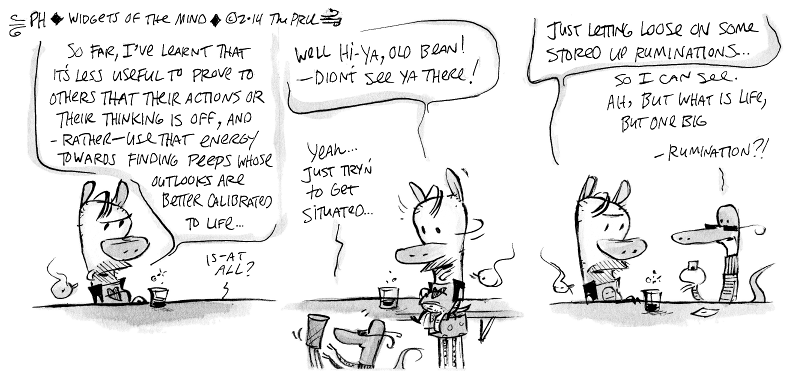 PH ◆ WIDGETS OF THE MIND ◆ ©2014 THE PRU
SO FAR, I'VE LEARNT THAT
IT'S LESS USEFUL TO PROVE TO
OTHERS THAT THEIR ACTIONS OR
THEIR THINKING IS OFF, AND
-RATHER-USE THAT ENERGY
TOWARDS FINDING PEEPS WHOSE
OUTLOOKS ARE
BETTER CALIBRATED
TO LIFE...
IS-AT
ALL?
WELL HI-YA, OLD BEAN!
-DIDN'T SEE YA THERE!
YEAH...
JUST TRYN'
TO GET
SITUATED...
JUST LETTING LOOSE ON SOME
STORED UP RUMINATIONS...
SO I CAN SEE.
AH, BUT WHAT IS LIFE,
BUT ONE BIG
-RUMINATION?!